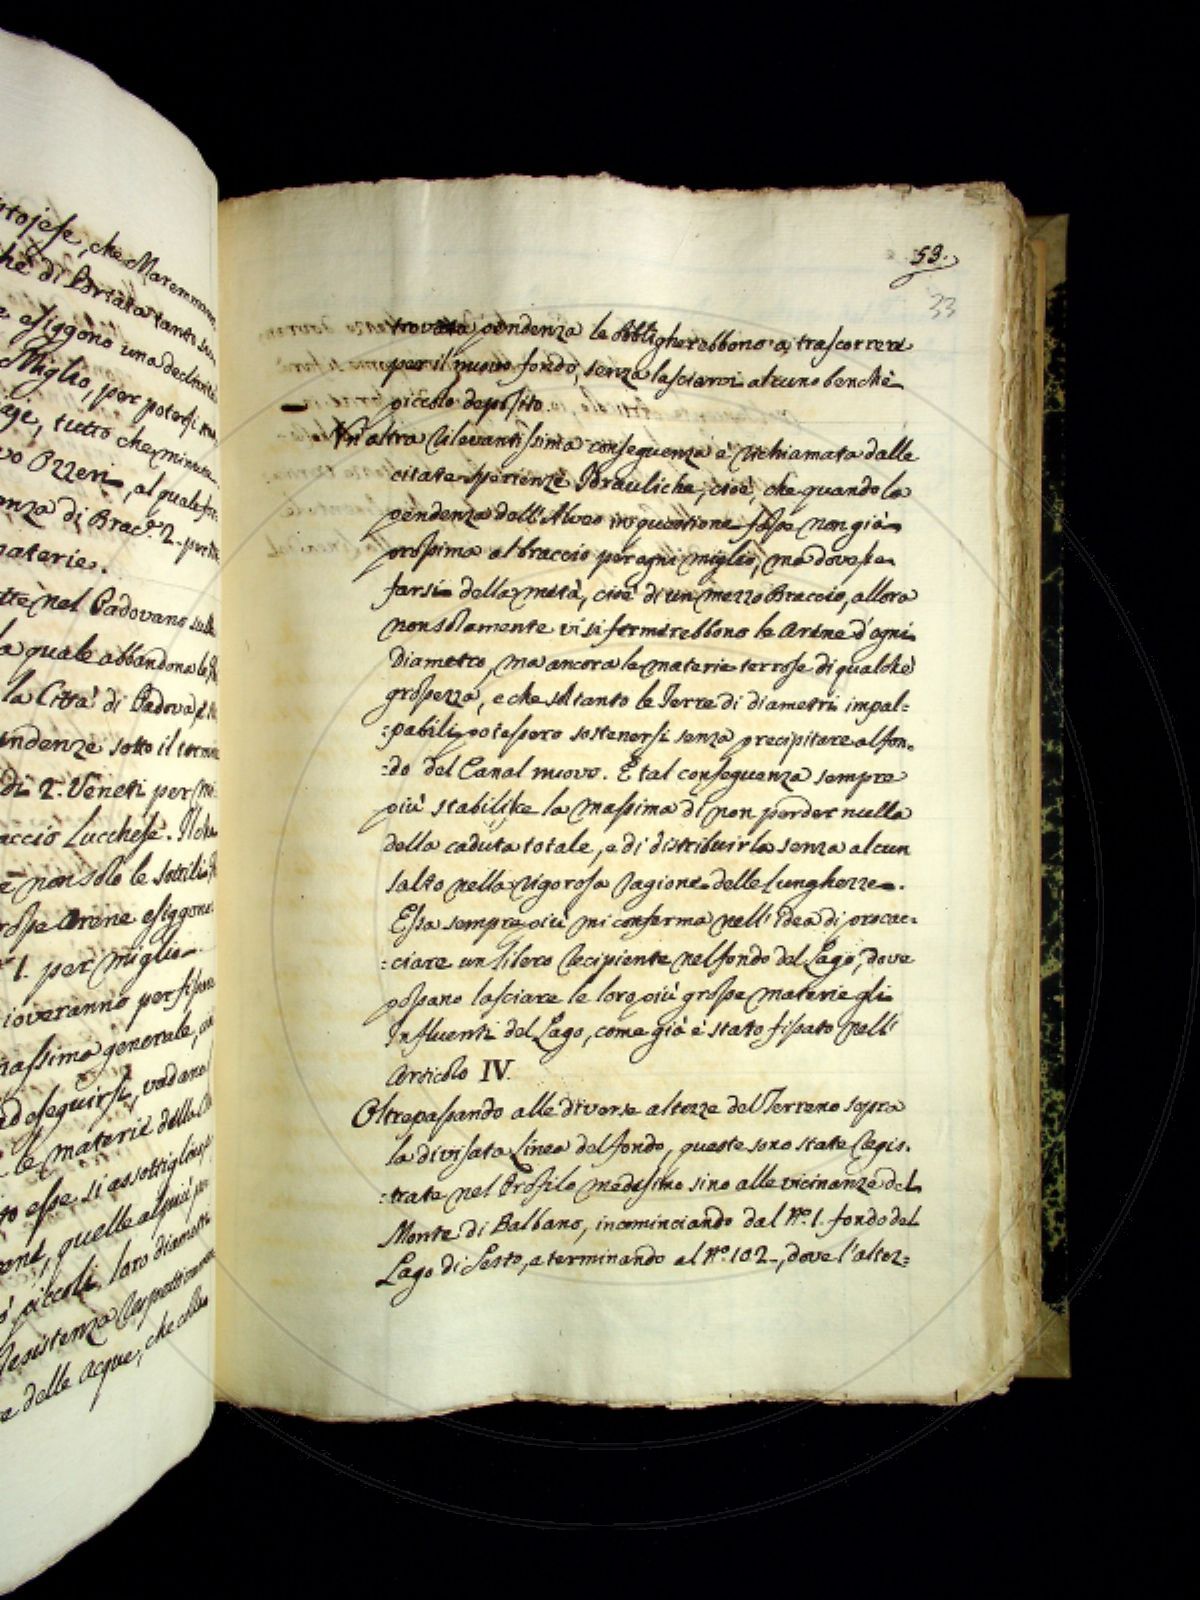 ntojese, che Maremmane
che di Portata tanto
esiggono una declività
Miglio, per potersi
tutto che minute
vo Ozzeri, al quale
enza di Bracc.ª 2. per
materie.
nel Padovano sulla
la quale abbandona le
la Città di Padova,
endenze sotto il
di 2. Veneti per mi-
accio Lucchese. Il che
e non solo le sottili
rosse arene esiggono
1. per miglio.
ioveranno per fissare
massima generale,
ad eseguirsi, vadano
le materie della
to esse si assottigliano
quelle al più
piccoli loro diametri
Resistenza
e delle acque, che
53.
33
trovata pendenza le obbligherebbono a trascorrere
per il nuovo fondo, senza lasciarvi alcuno benchè
piccolo deposito.
Un altra rilevantissima conseguenza è richiamata dalle
citate sperienze Idrauliche, cioè, che quando la
pendenza dell'Alveo in questione fosse non già
prossima al braccio per ogni miglio, ma dovesse
farsi della metà, cioè di un mezzo Braccio, allora
non solamente vi si fermerebbono le arene d'ogni
Diametro, ma ancora le materie terrose di qualche
grossezza, e che soltanto le Terre di diametri impal:
:pabili potessero sostenersi senza precipitare al fon:
:do del Canal nuovo. E tal conseguenza sempre
più stabilisce la massima di non perder nulla
della caduta totale, e di distribuirla senza alcun
salto nella rigorosa ragione delle Lunghezze.
Essa sempre più mi conferma nell'idea di procac:
:ciare un libero recipiente nel fondo del Lago, dove
possano lasciare le loro più grosse materie gli
Influenti del Lago, come già è stato fissato nell'
Articolo IV.
Oltrepassando alle diverse altezze del Terreno sopra
la divisata Linea del fondo, queste sono state regis:
:trate nel Profilo medesimo sino alle vicinanze del
Monte di Balbano, incominciando dal Nº. 1. fondo del
Lago di Sesto, e terminando al Nº. 102, dove l'altez: